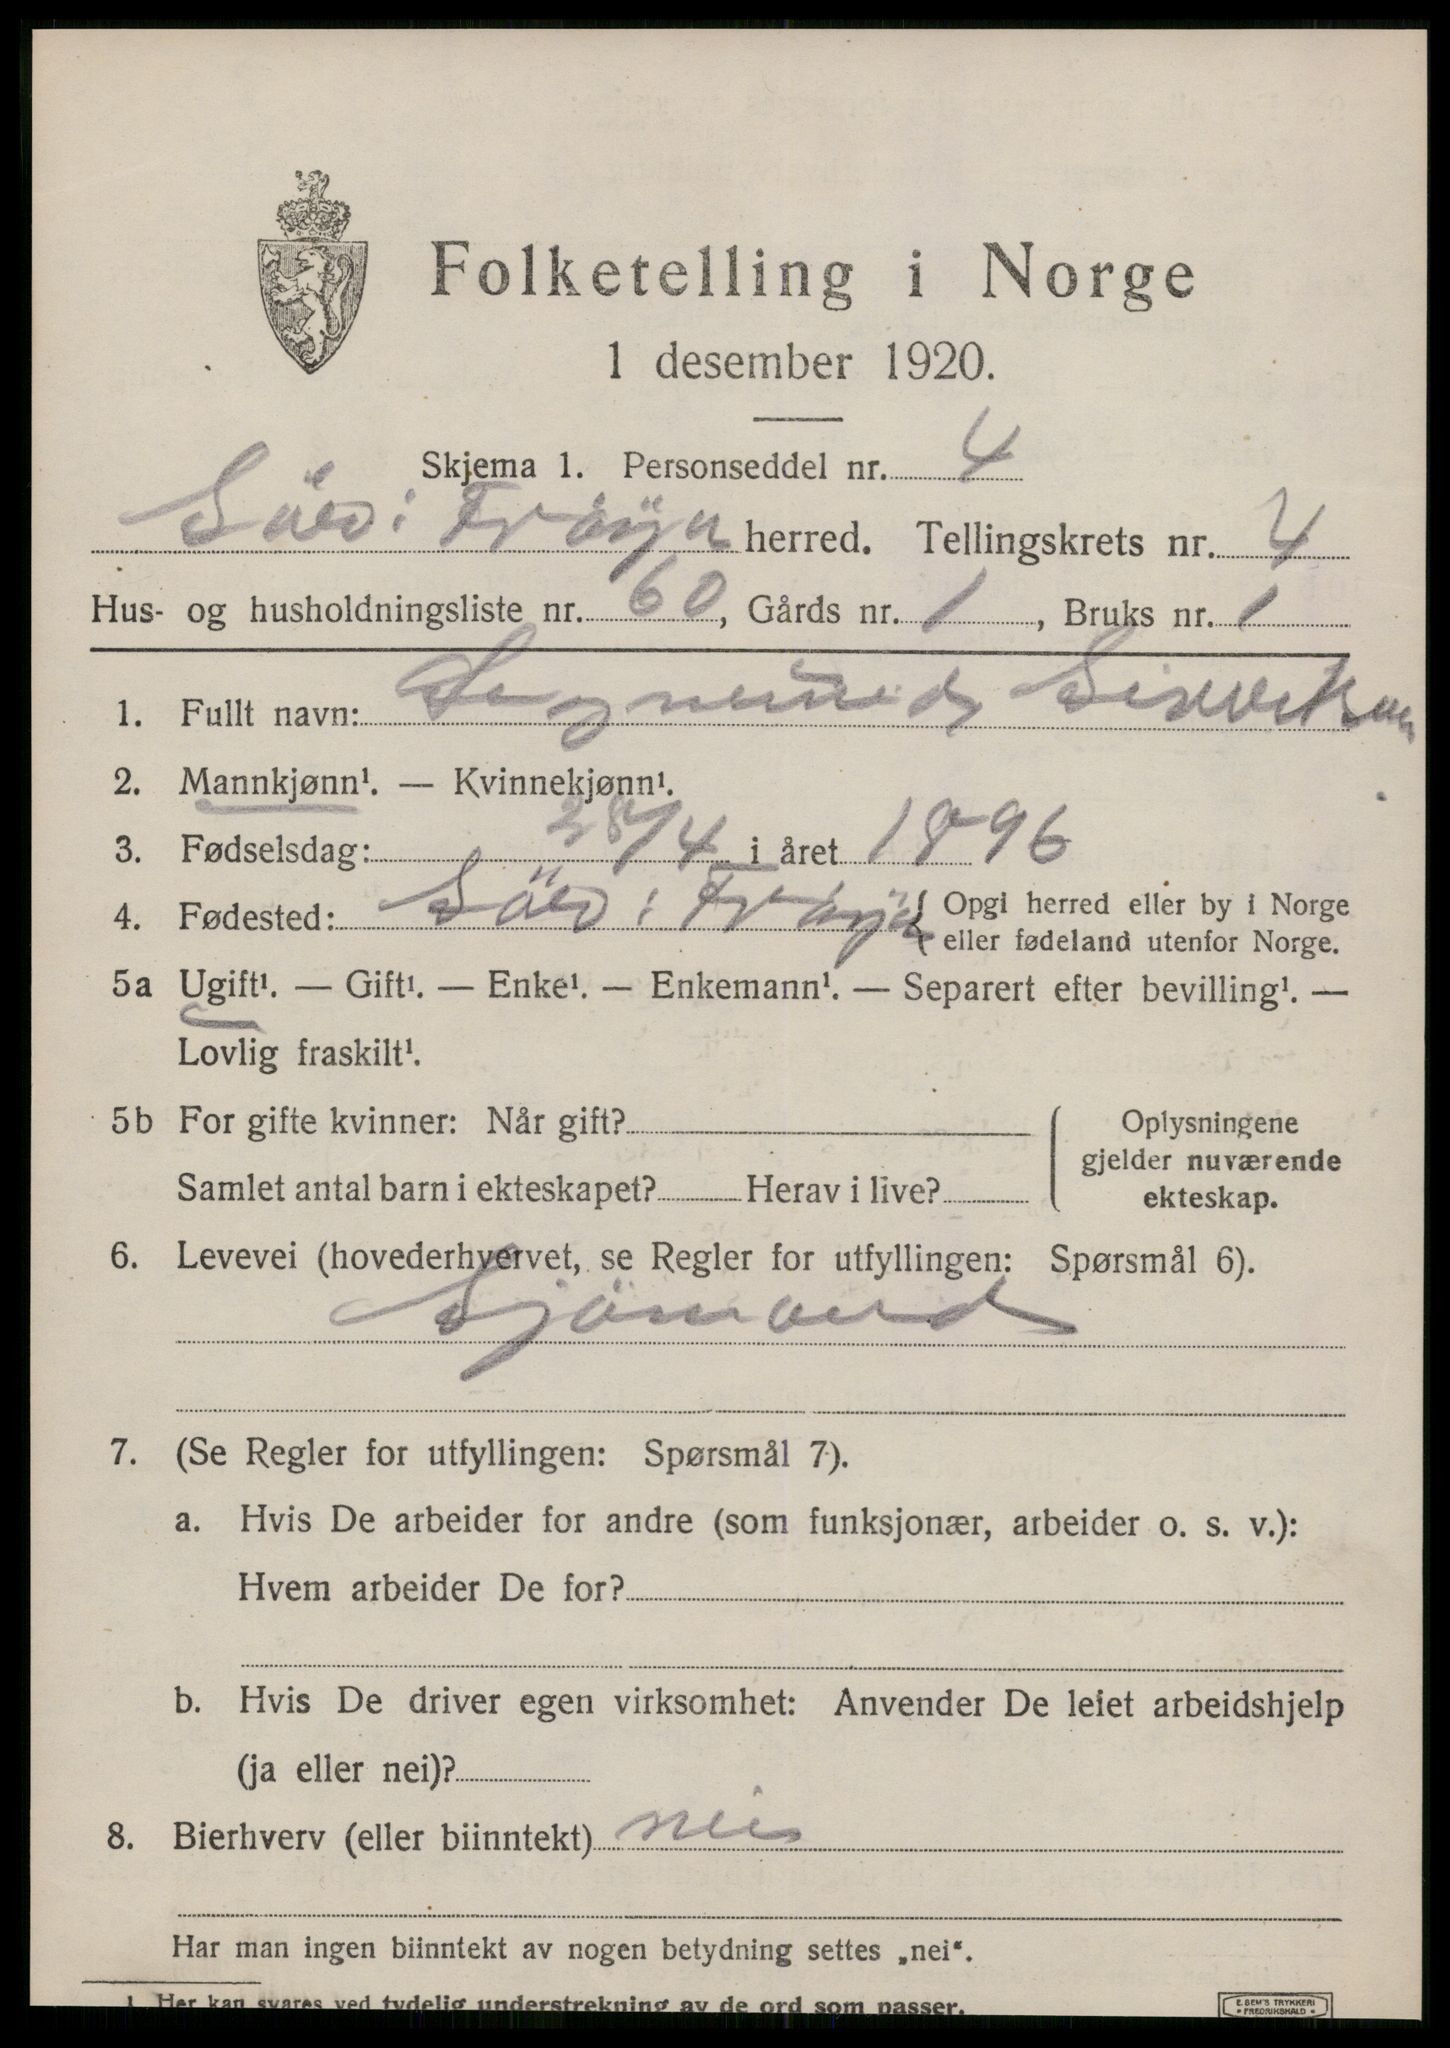 Folketelling i Norge
1 desember 1920.
Skjema 1. Personseddel nr. 4
herred. Tellingskrets nr. 4
Hus- og husholdningsliste nr. 60, Gårds nr. 1, Bruks nr. 1
1. Fullt navn:
2. Mannkjønn¹. — Kvinnekjønn¹.
3. Fødselsdag: 28/4 i året 1896
4. Fødested: { Opgi herred eller by i Norge
eller fødeland utenfor Norge.
5a Ugift¹. — Gift¹. — Enke¹. — Enkemann¹. — Separert efter bevilling¹. —
Lovlig fraskilt¹.
5b For gifte kvinner: Når gift?
Samlet antal barn i ekteskapet? Herav i live?
Oplysningene
gjelder nuværende
ekteskap.
6. Levevei (hovederhvervet, se Regler for utfyllingen: Spørsmål 6).
Sjömand
7. (Se Regler for utfyllingen: Spørsmål 7).
a. Hvis De arbeider for andre (som funksjonær, arbeider o. s. v.):
Hvem arbeider De for?
b. Hvis De driver egen virksomhet: Anvender De leiet arbeidshjelp
(ja eller nei)?
8. Bierhverv (eller biinntekt) nei
Har man ingen biinntekt av nogen betydning settes „nei“.
1 Her kan svares ved tydelig understrekning av de ord som passer.
E. SEM'S TRYKKERI
FREDRIKSHALD